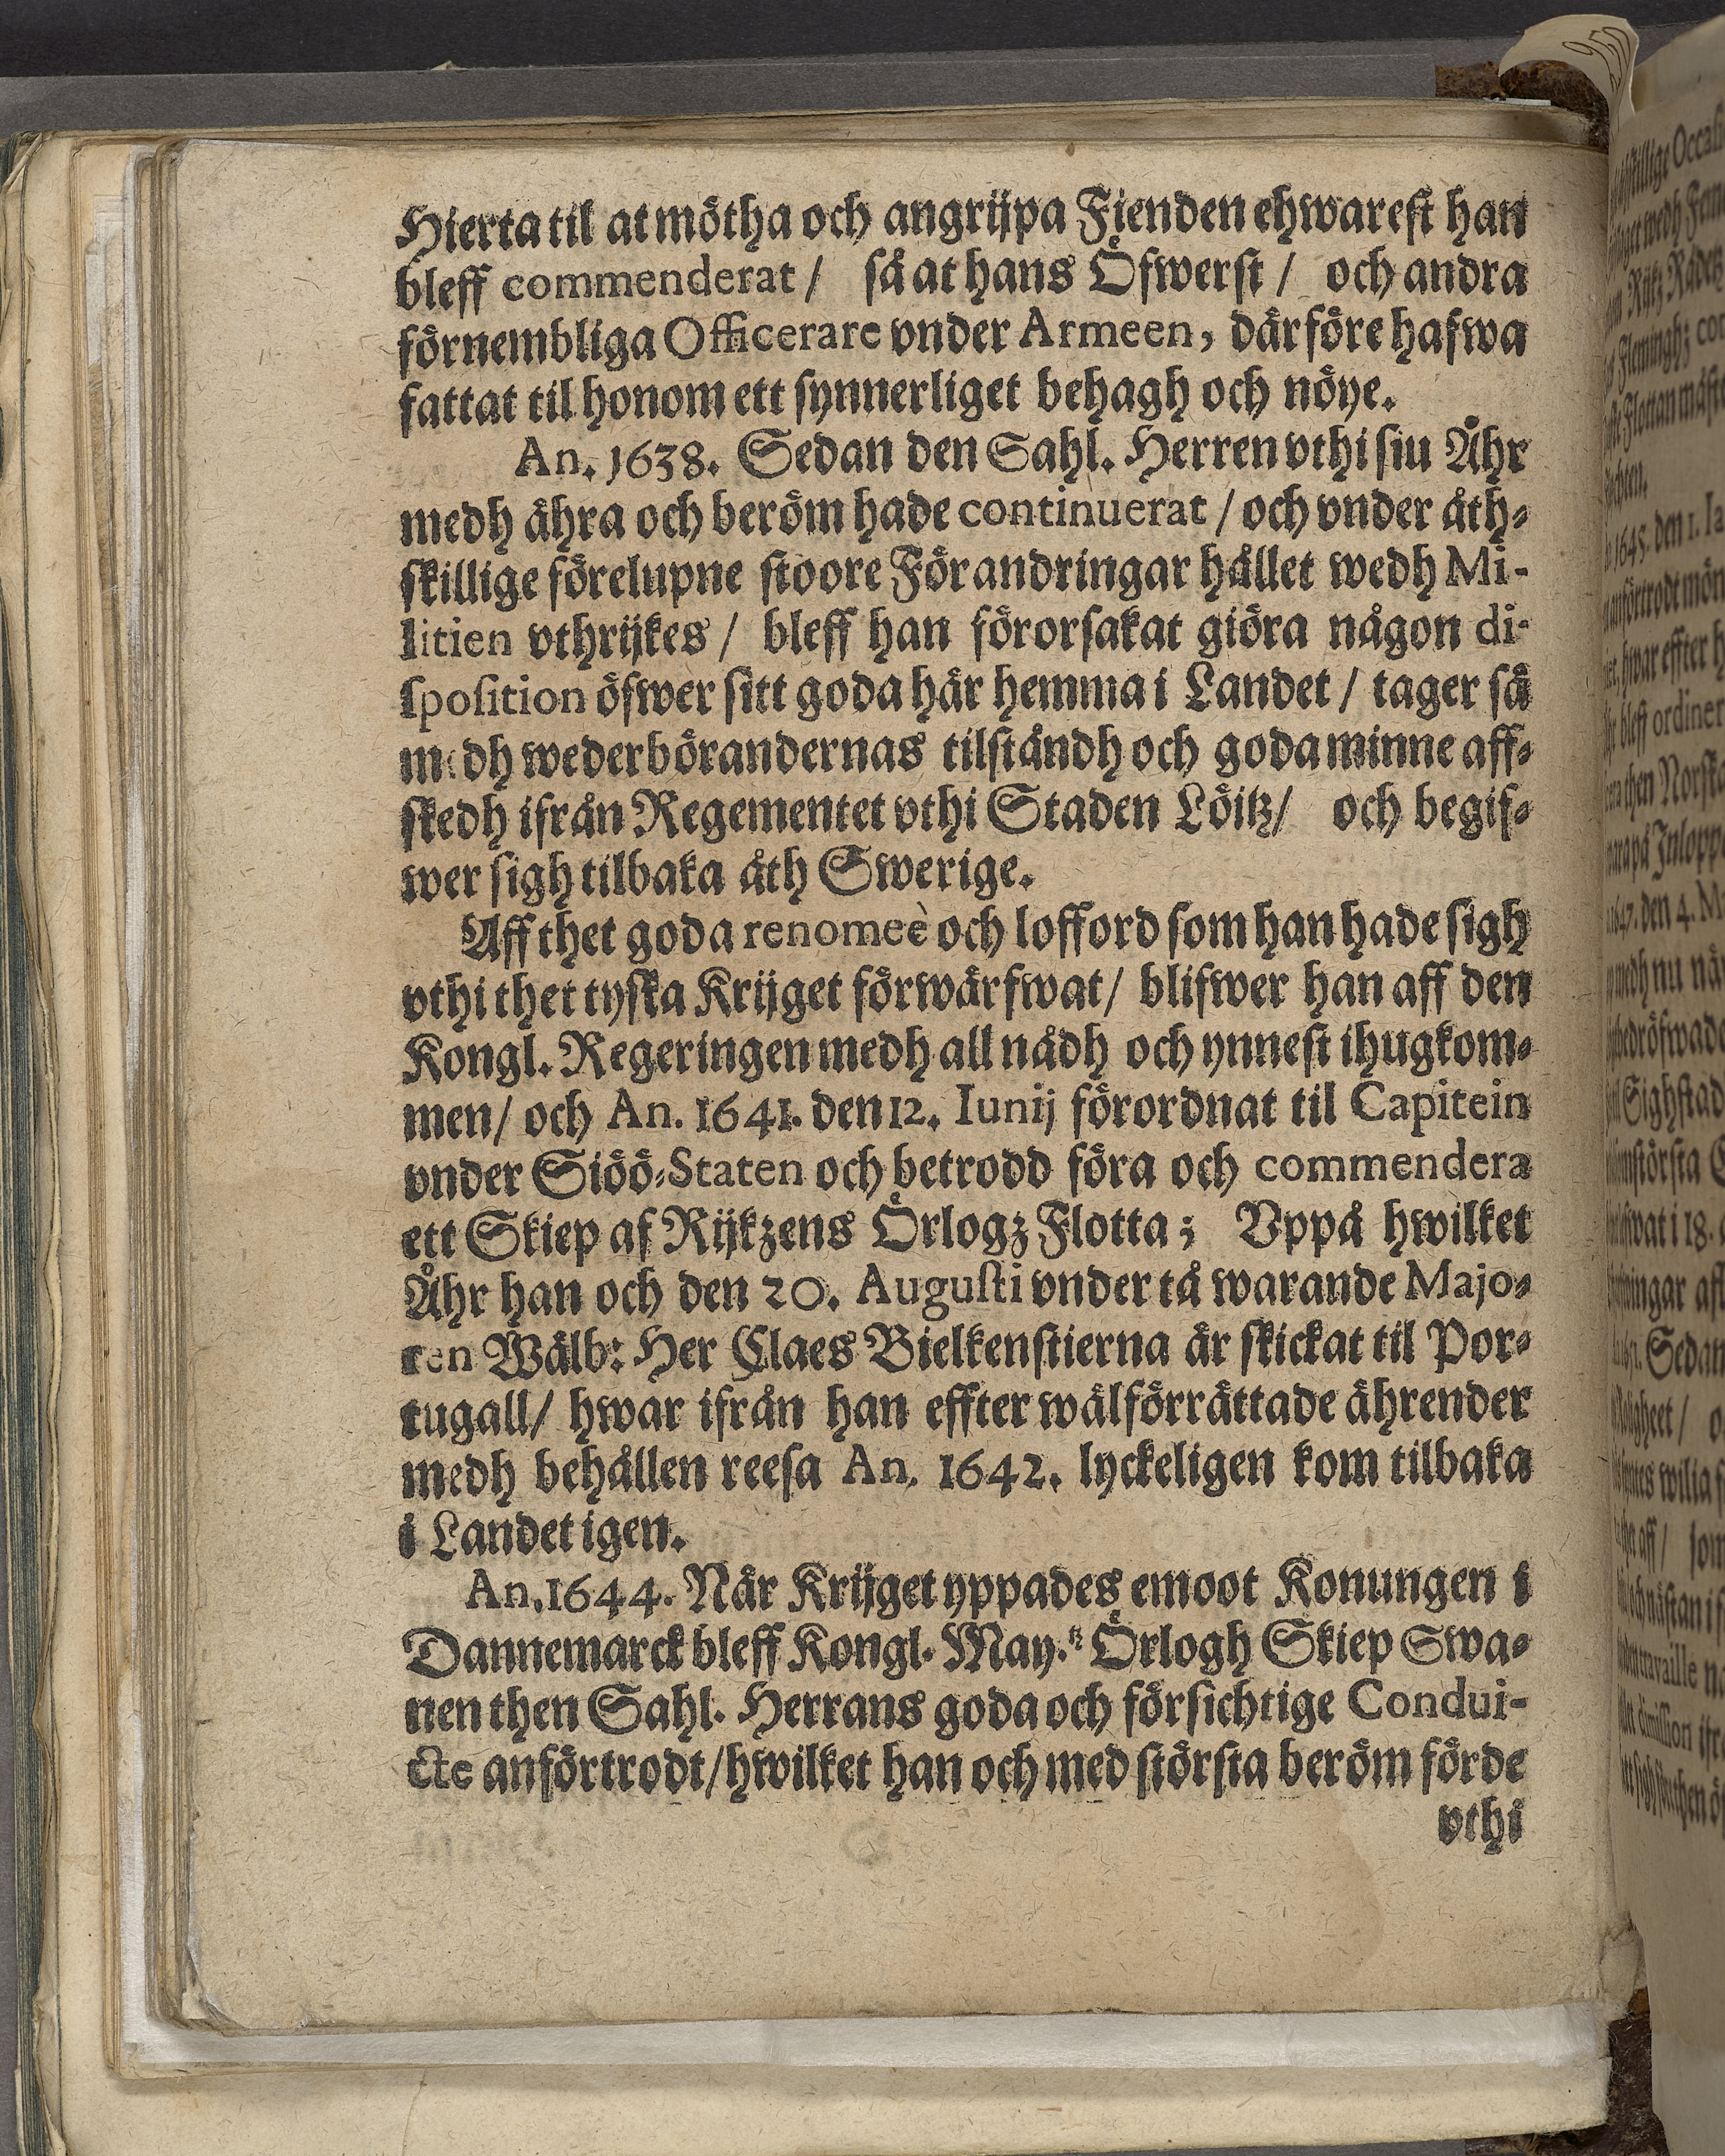 Hierta til at mötha och angrijpa Fienden ehwarest han
bleff commenderat / så at hans Öfwerst / och andra
förnembliga Officerare vnder Armeen, därföre hafwa
fattat til honom ett synnerliget behagh och nöye.
An. 1638. Sedan den Sahl. Herren vthi siu Åhr
medh ähra och beröm hade continuerat / och vnder åth-
skillige förelupne stoore Förandringar hållet wedh Mi-
litien vthrijkes / bleff han förorsakat giöra någon di-
sposition öfwer sitt goda här hemma i Landet / tager så
medh wederbörandernas tilståndh och goda minne aff-
skedh ifrån Regementet vthi Staden Löitz / och begif-
wer sigh tilbaka åth Swerige.
Aff thet goda renomeè och lofford som han hade sigh
vthi thet tyska Krijget förwärfwat / blifwer han aff den
Kongl. Regeringen medh all nådh och ynnest ihugkom-
men / och An. 1641. den 12. Iunij förordnat til Capitein
vnder Siöö-Staten och betrodd föra och commendera
ett Skiep af Rijkzens Örlogz Flotta; Vppå hwilket
Åhr han och den 20. Augusti vnder tå warande Majo-
ren Wälb: Her Claes Bielkenstierna är skickat til Por-
tugall / hwar ifrån han effter wälförrättade ährender
medh behållen reesa An. 1642. lyckeligen kom tilbaka
i Landet igen.
An. 1644. När Krijget yppades emoot Konungen i
Dannemarck bleff Kongl. May.tz Örlogh Skiep Swa-
nen then Sahl. Herrans goda och försichtige Condui-
cte anförtrodt / hwilket han och med största beröm förde
vthi